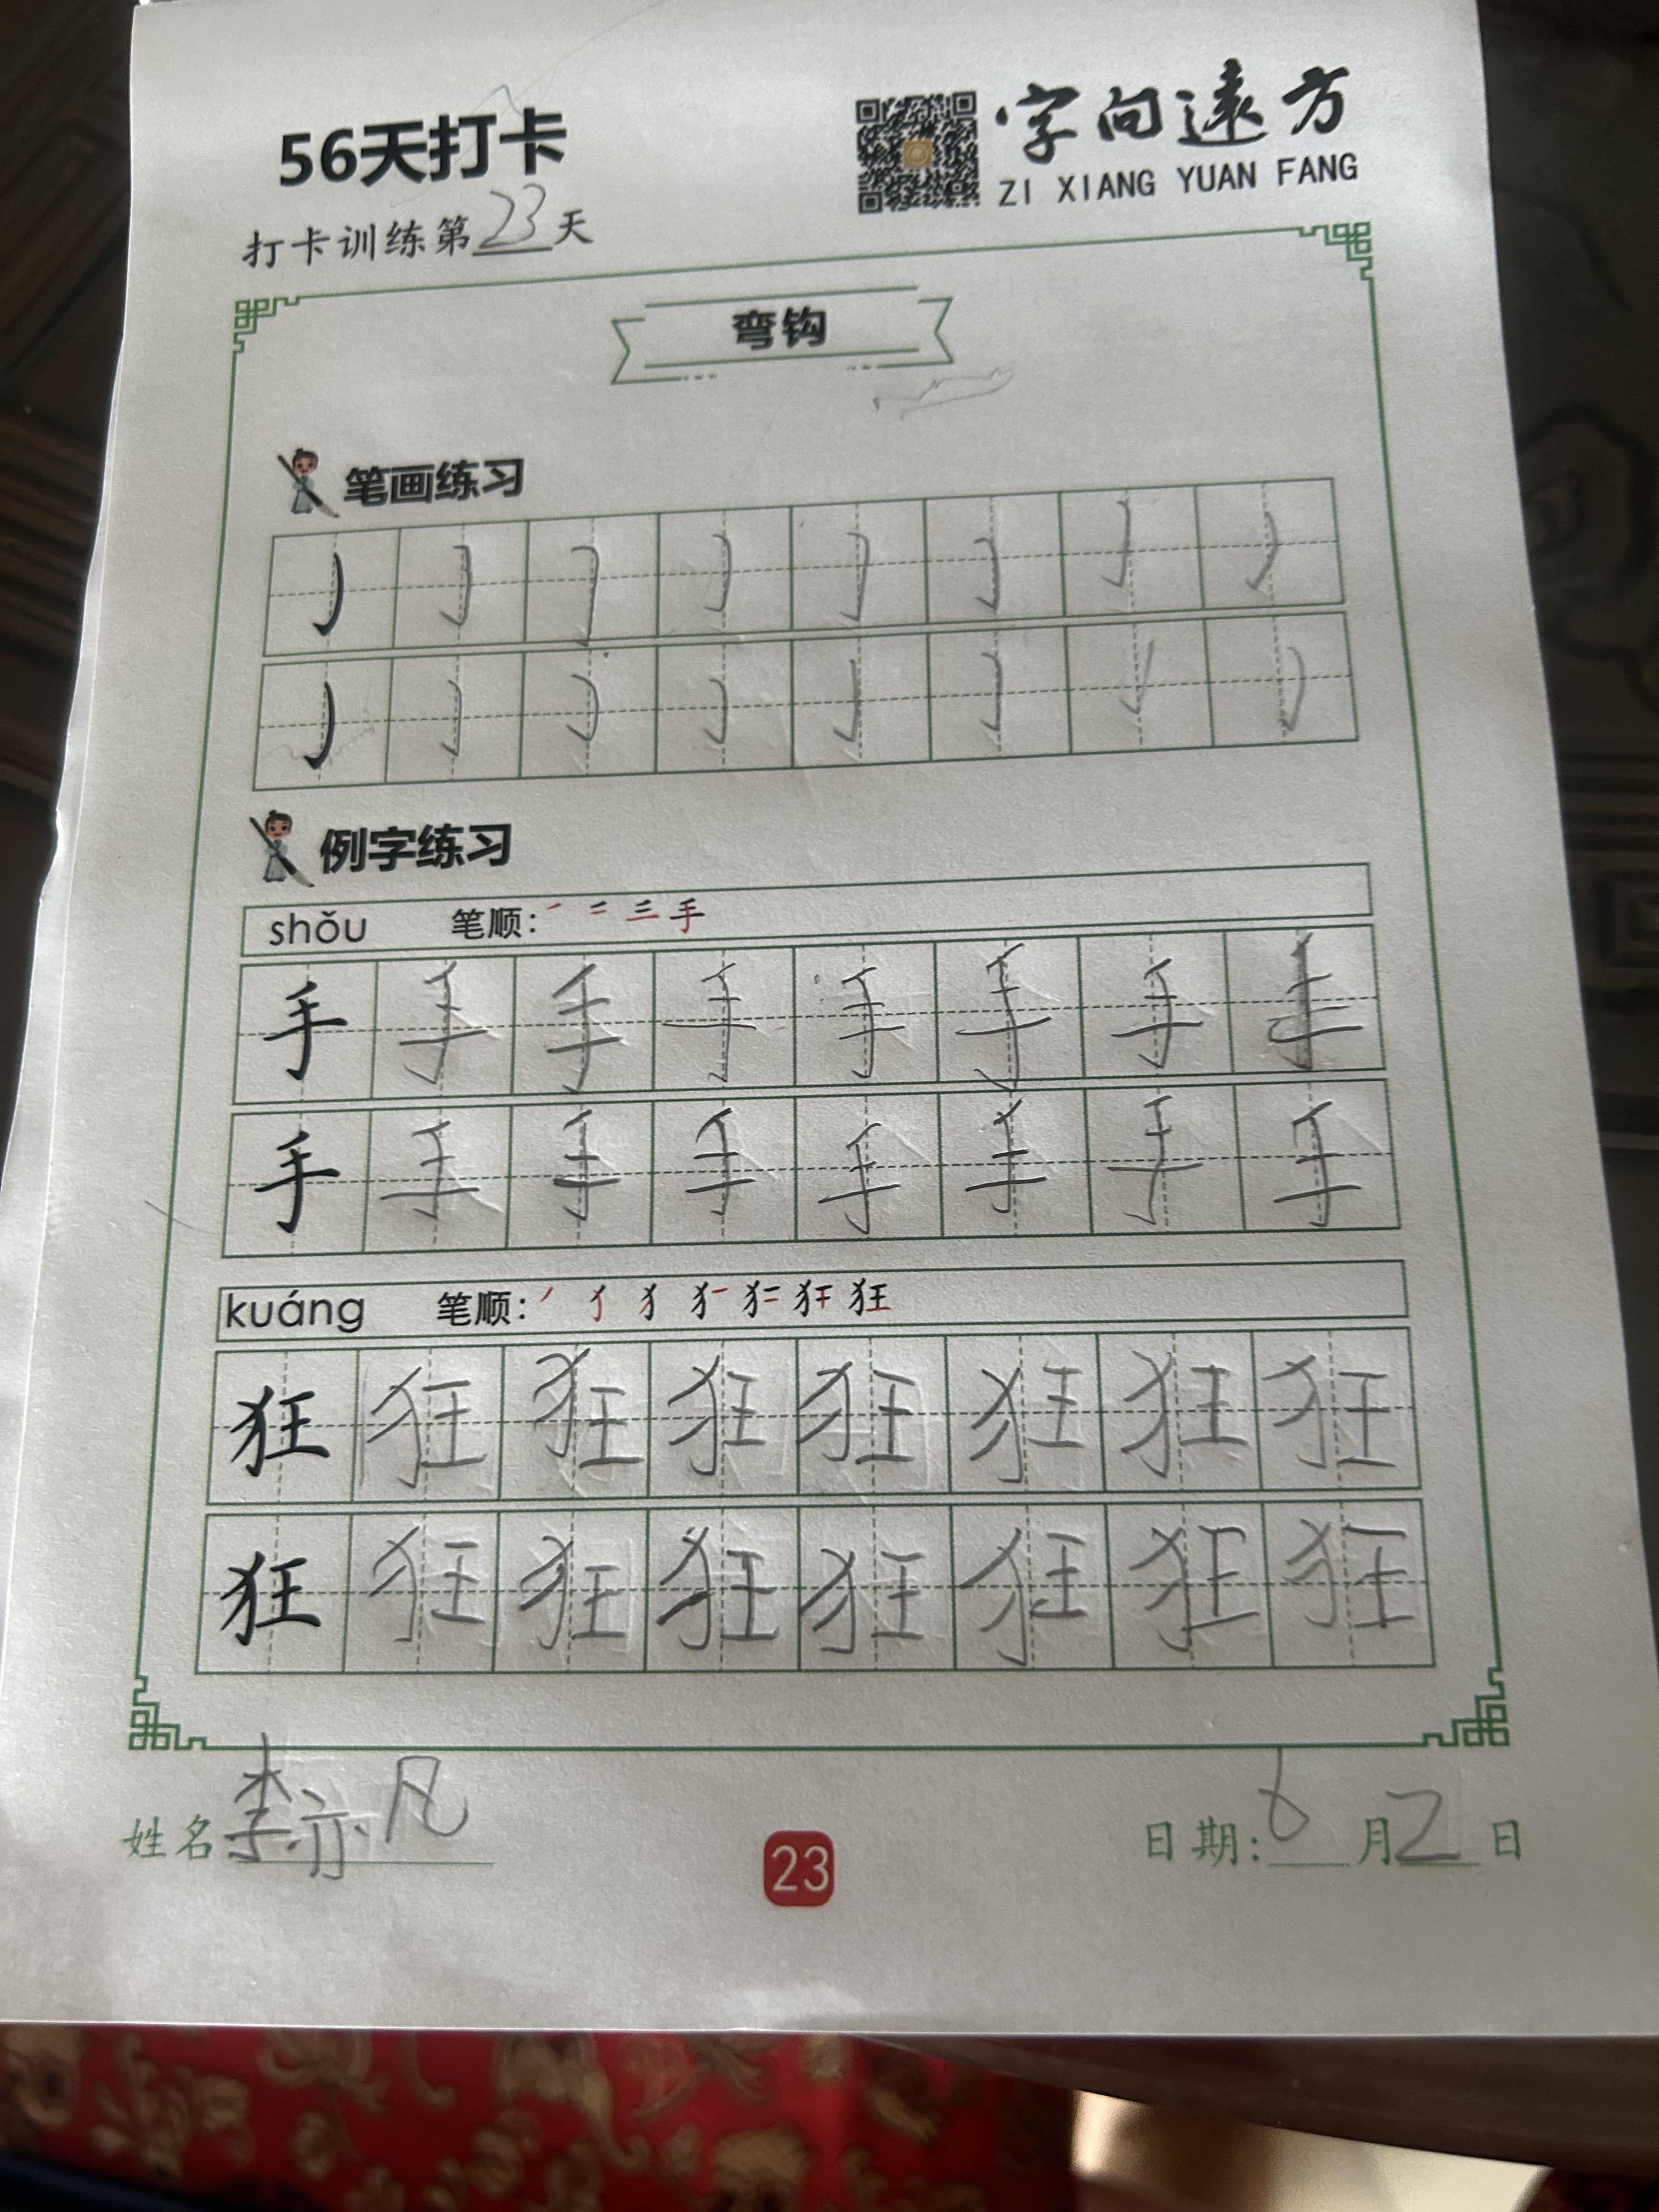 56天打卡
字向远方
ZI XIANG YUAN FANG
打卡训练第23天
弯钩
笔画练习
例字练习
shǒu 笔顺:手
手手手手手手手手
手手手手手手手手
kuáng 笔顺:狂
狂狂狂狂狂狂狂狂
狂狂狂狂狂狂狂狂
姓名李亦凡
23
日期:6月2日